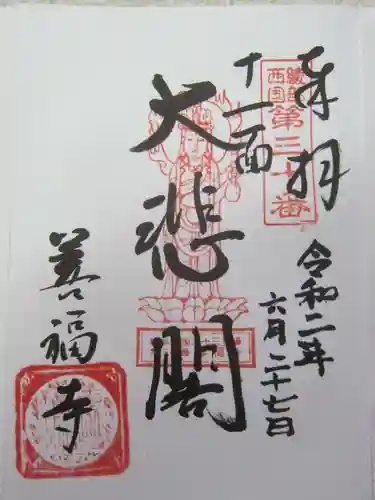 奉拝
綾部西国第三十番
令和二年
六月二十七日
十一面
大悲閣
善福寺